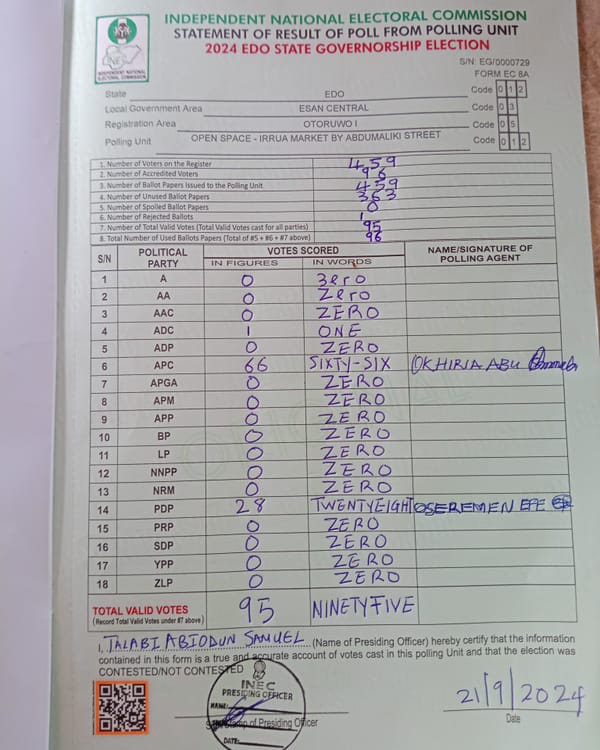 INDEPENDENT NATIONAL ELECTORAL COMMISSION
STATEMENT OF RESULT OF POLL FROM POLLING UNIT
2024 EDO STATE GOVERNORSHIP ELECTION
INEC
INDEPENDENT NATIONAL ELECTORAL COMMISSION
S/N: EG/0000729
FORM EC 8A
State EDO Code 0 1 2
Local Government Area ESAN CENTRAL Code 0 3
Registration Area OTORUWO I Code 0 5
Polling Unit OPEN SPACE - IRRUA MARKET BY ABDUMALIKI STREET Code 0 1 2
1. Number of Voters on the Register 459
2. Number of Accredited Voters 96
3. Number of Ballot Papers Issued to the Polling Unit 459
4. Number of Unused Ballot Papers 363
5. Number of Spoiled Ballot Papers 0
6. Number of Rejected Ballots 1
7. Number of Total Valid Votes (Total Valid Votes cast for all parties) 95
8. Total Number of Used Ballots Papers (Total of #5 + #6 + #7 above) 96
S/N POLITICAL PARTY VOTES SCORED NAME/SIGNATURE OF POLLING AGENT
IN FIGURES IN WORDS
1 A 0 Zero
2 AA 0 Zero
3 AAC 0 ZERO
4 ADC 1 ONE
5 ADP 0 ZERO
6 APC 66 SIXTY-SIX OKHIRIA ABU
7 APGA 0 ZERO
8 APM 0 ZERO
9 APP 0 ZERO
10 BP 0 ZERO
11 LP 0 ZERO
12 NNPP 0 ZERO
13 NRM 0 ZERO
14 PDP 28 TWENTYEIGHT OSEREMEN EFE
15 PRP 0 ZERO
16 SDP 0 ZERO
17 YPP 0 ZERO
18 ZLP 0 ZERO
TOTAL VALID VOTES 95 NINETYFIVE
(Record Total Valid Votes under #7 above)
I, TALABI ABIODUN SAMUEL (Name of Presiding Officer) hereby certify that the information
contained in this form is a true and accurate account of votes cast in this polling Unit and that the election was
CONTESTED/NOT CONTESTED
INEC
PRESIDING OFFICER
NAME:
of Presiding Officer
DATE:
21/9/2024
Date